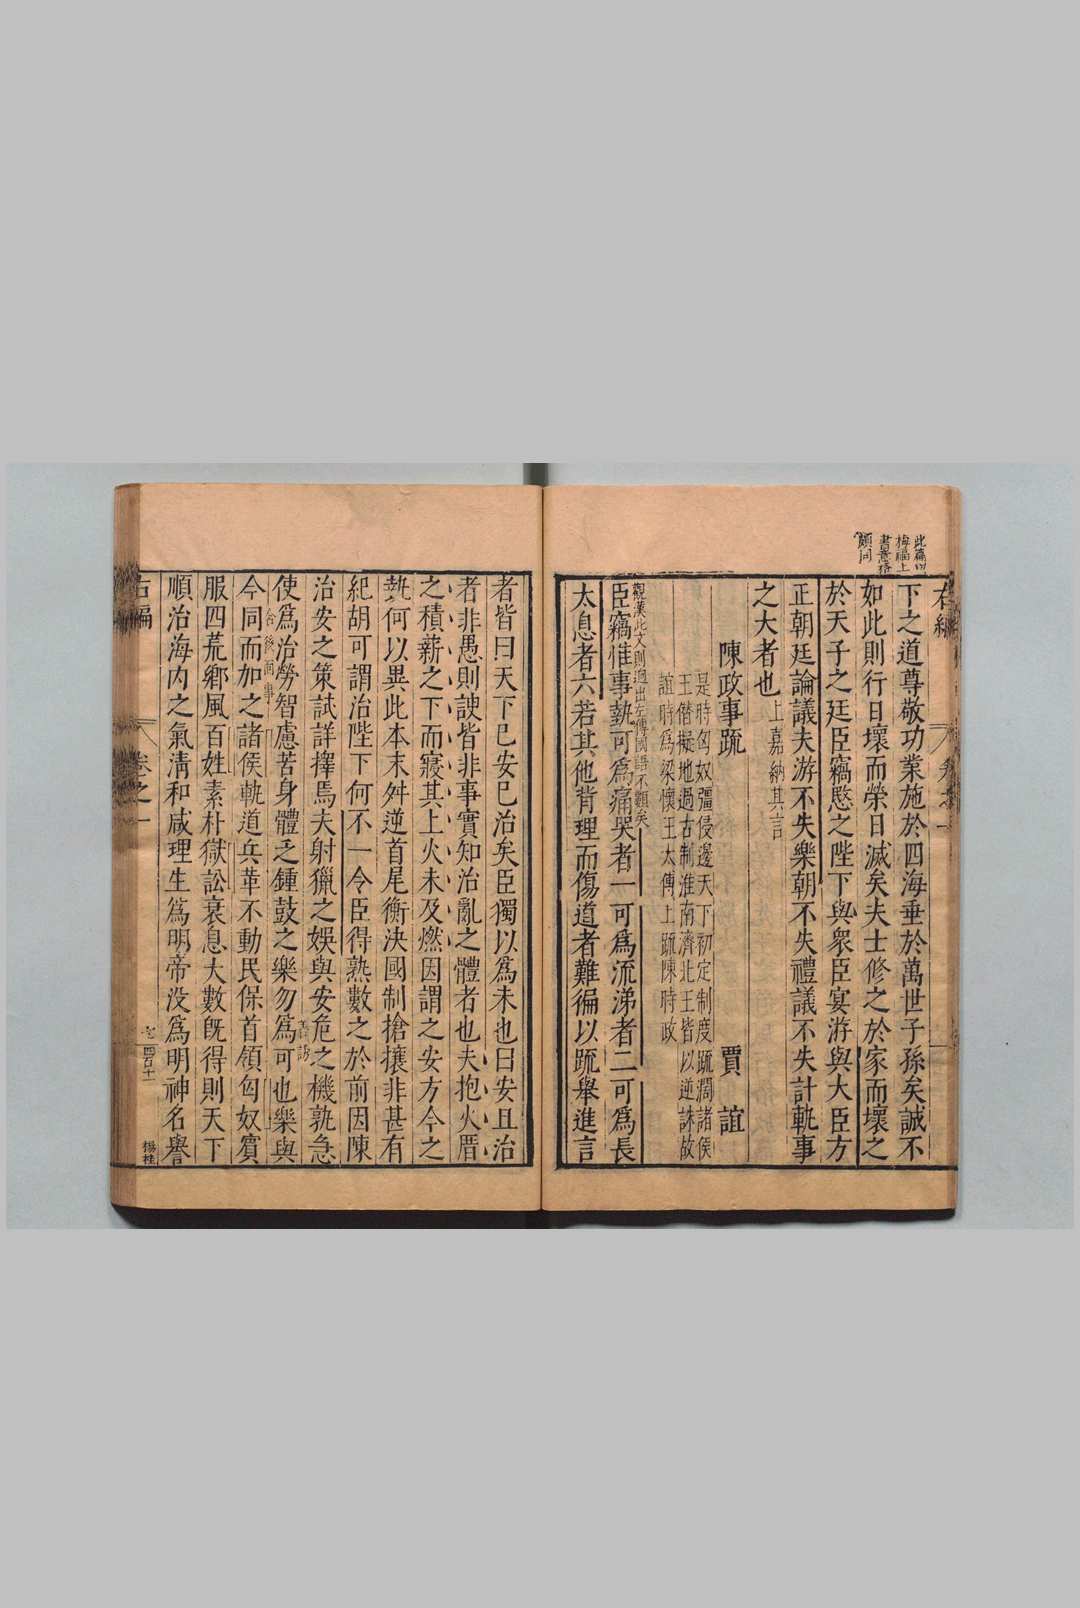 此篇以
梅福上
書意極
顧問
下之道尊敬功業施於四海垂於萬世子孫矣誠不
如此則行日壞而榮日滅矣夫士修之於家而壞之
於天子之廷臣竊愍之陛下與衆臣宴游與大臣方
正朝廷論議夫游不失樂朝不失禮議不失計軌事
之大者也上嘉納其言
陳政事䟽 賈誼
是時匈奴彊侵邊天下初定制度䟽濶諸侯
王僭擬地過古制淮南濟北王皆以逆誅故
誼時爲梁懷王太傅上䟽陳時政
觀漢此文則迥出左傳國語不顧矣
臣竊惟事埶可爲痛哭者一可爲流涕者二可爲長
太息者六若其他背理而傷道者難徧以䟽舉進言
者皆曰天下已安已治矣臣獨以爲未也曰安且治
者非愚則諛皆非事實知治亂之體者也夫抱火厝
之積薪之下而寢其上火未及燃因謂之安方今之
埶何以異此本末舛逆首尾衡決國制搶攘非甚有
紀胡可謂治陛下何不一令臣得熟數之於前因陳
治安之策試詳擇焉夫射獵之娛與安危之機孰急
使爲治勞智慮苦身體乏鍾鼓之樂勿爲可也樂與
含後面事
今同而加之諸侯軌道兵革不動民保首領匈奴賓
服四荒鄉風百姓素朴獄訟衰息大數旣得則天下
順治海内之氣清和咸理生爲明帝没爲明神名譽
右編 卷之一 四百十一 楊桂